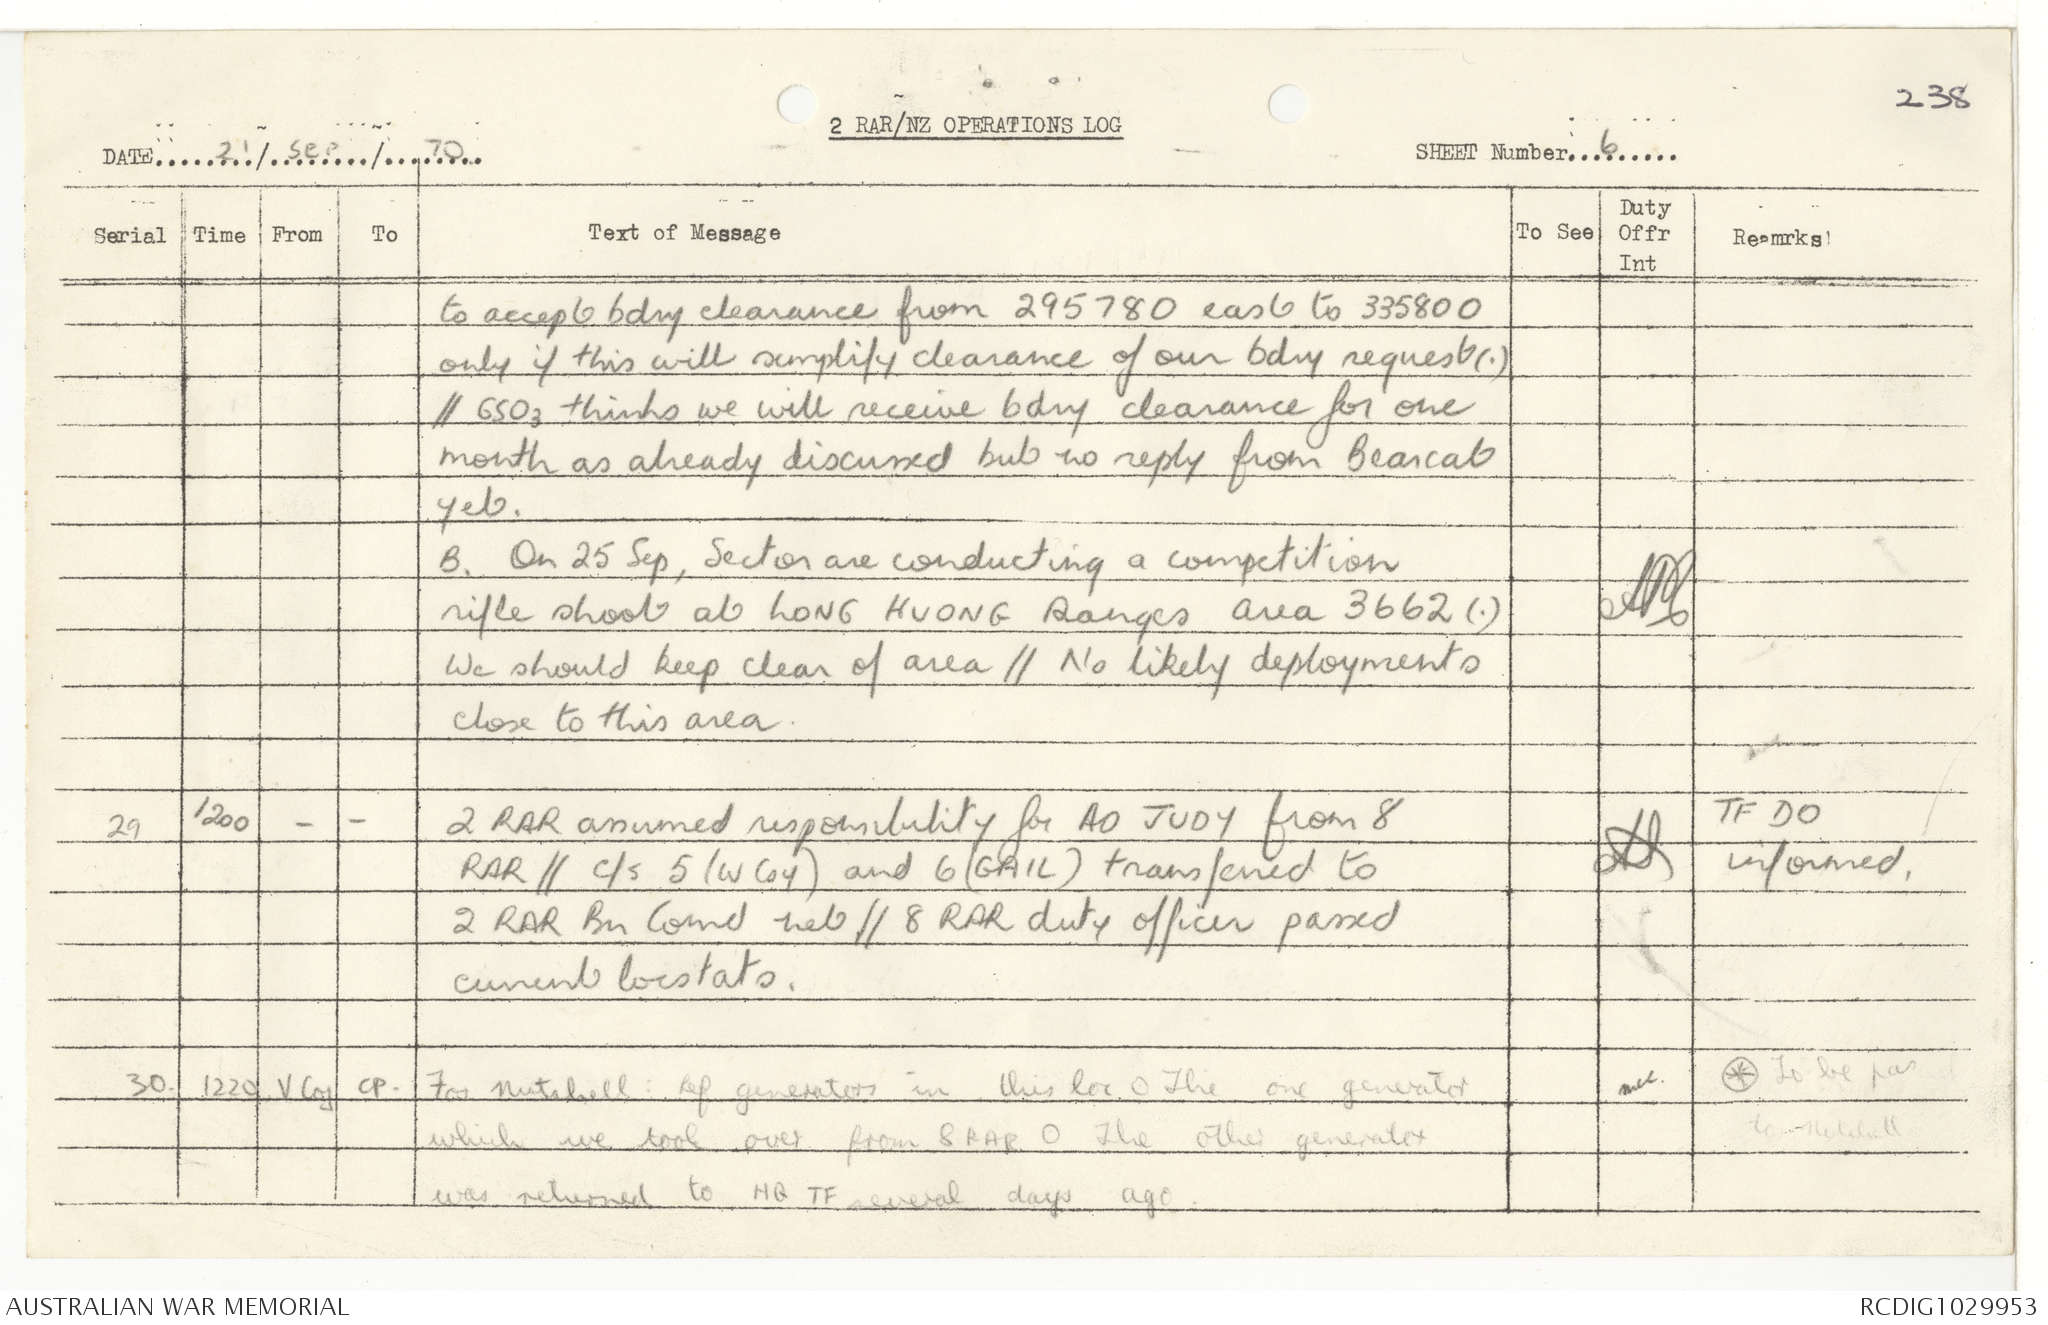 238
2 RAR/NZ OPERATIONS LOG
DATE.....21/.Sep.../....70....
SHEET Number....6.....
Serial Time From To Text of Message To See Duty Offr Int Reamrks
to accept bdry clearance from 295780 east to 335800
only if this will simplify clearance of our bdry request(.)
// GSO3 thinks we will receive bdry clearance for one
month as already discussed but no reply from Bearcat
yet.
B. On 25 Sep, Sector are conducting a competition
rifle shoot at LONG HUONG Ranges area 3662 (.)
We should keep clear of area // No likely deployments
close to this area.
29 1200 - - 2 RAR assumed responsibility for AO JUDY from 8 TF DO
RAR // C/s 5 (W Coy) and 6 (GAIL) transferred to informed.
2 RAR Bn Comd net // 8 RAR duty officer passed
current locstats.
30. 1220 V Coy CP. For Nutshell: Ref generators in this loc O The one generator To be pas
which we took over from 8 RAR O The other generator to Nutshell
was returned to HQ TF several days ago.
AUSTRALIAN WAR MEMORIAL
RCDIG1029953